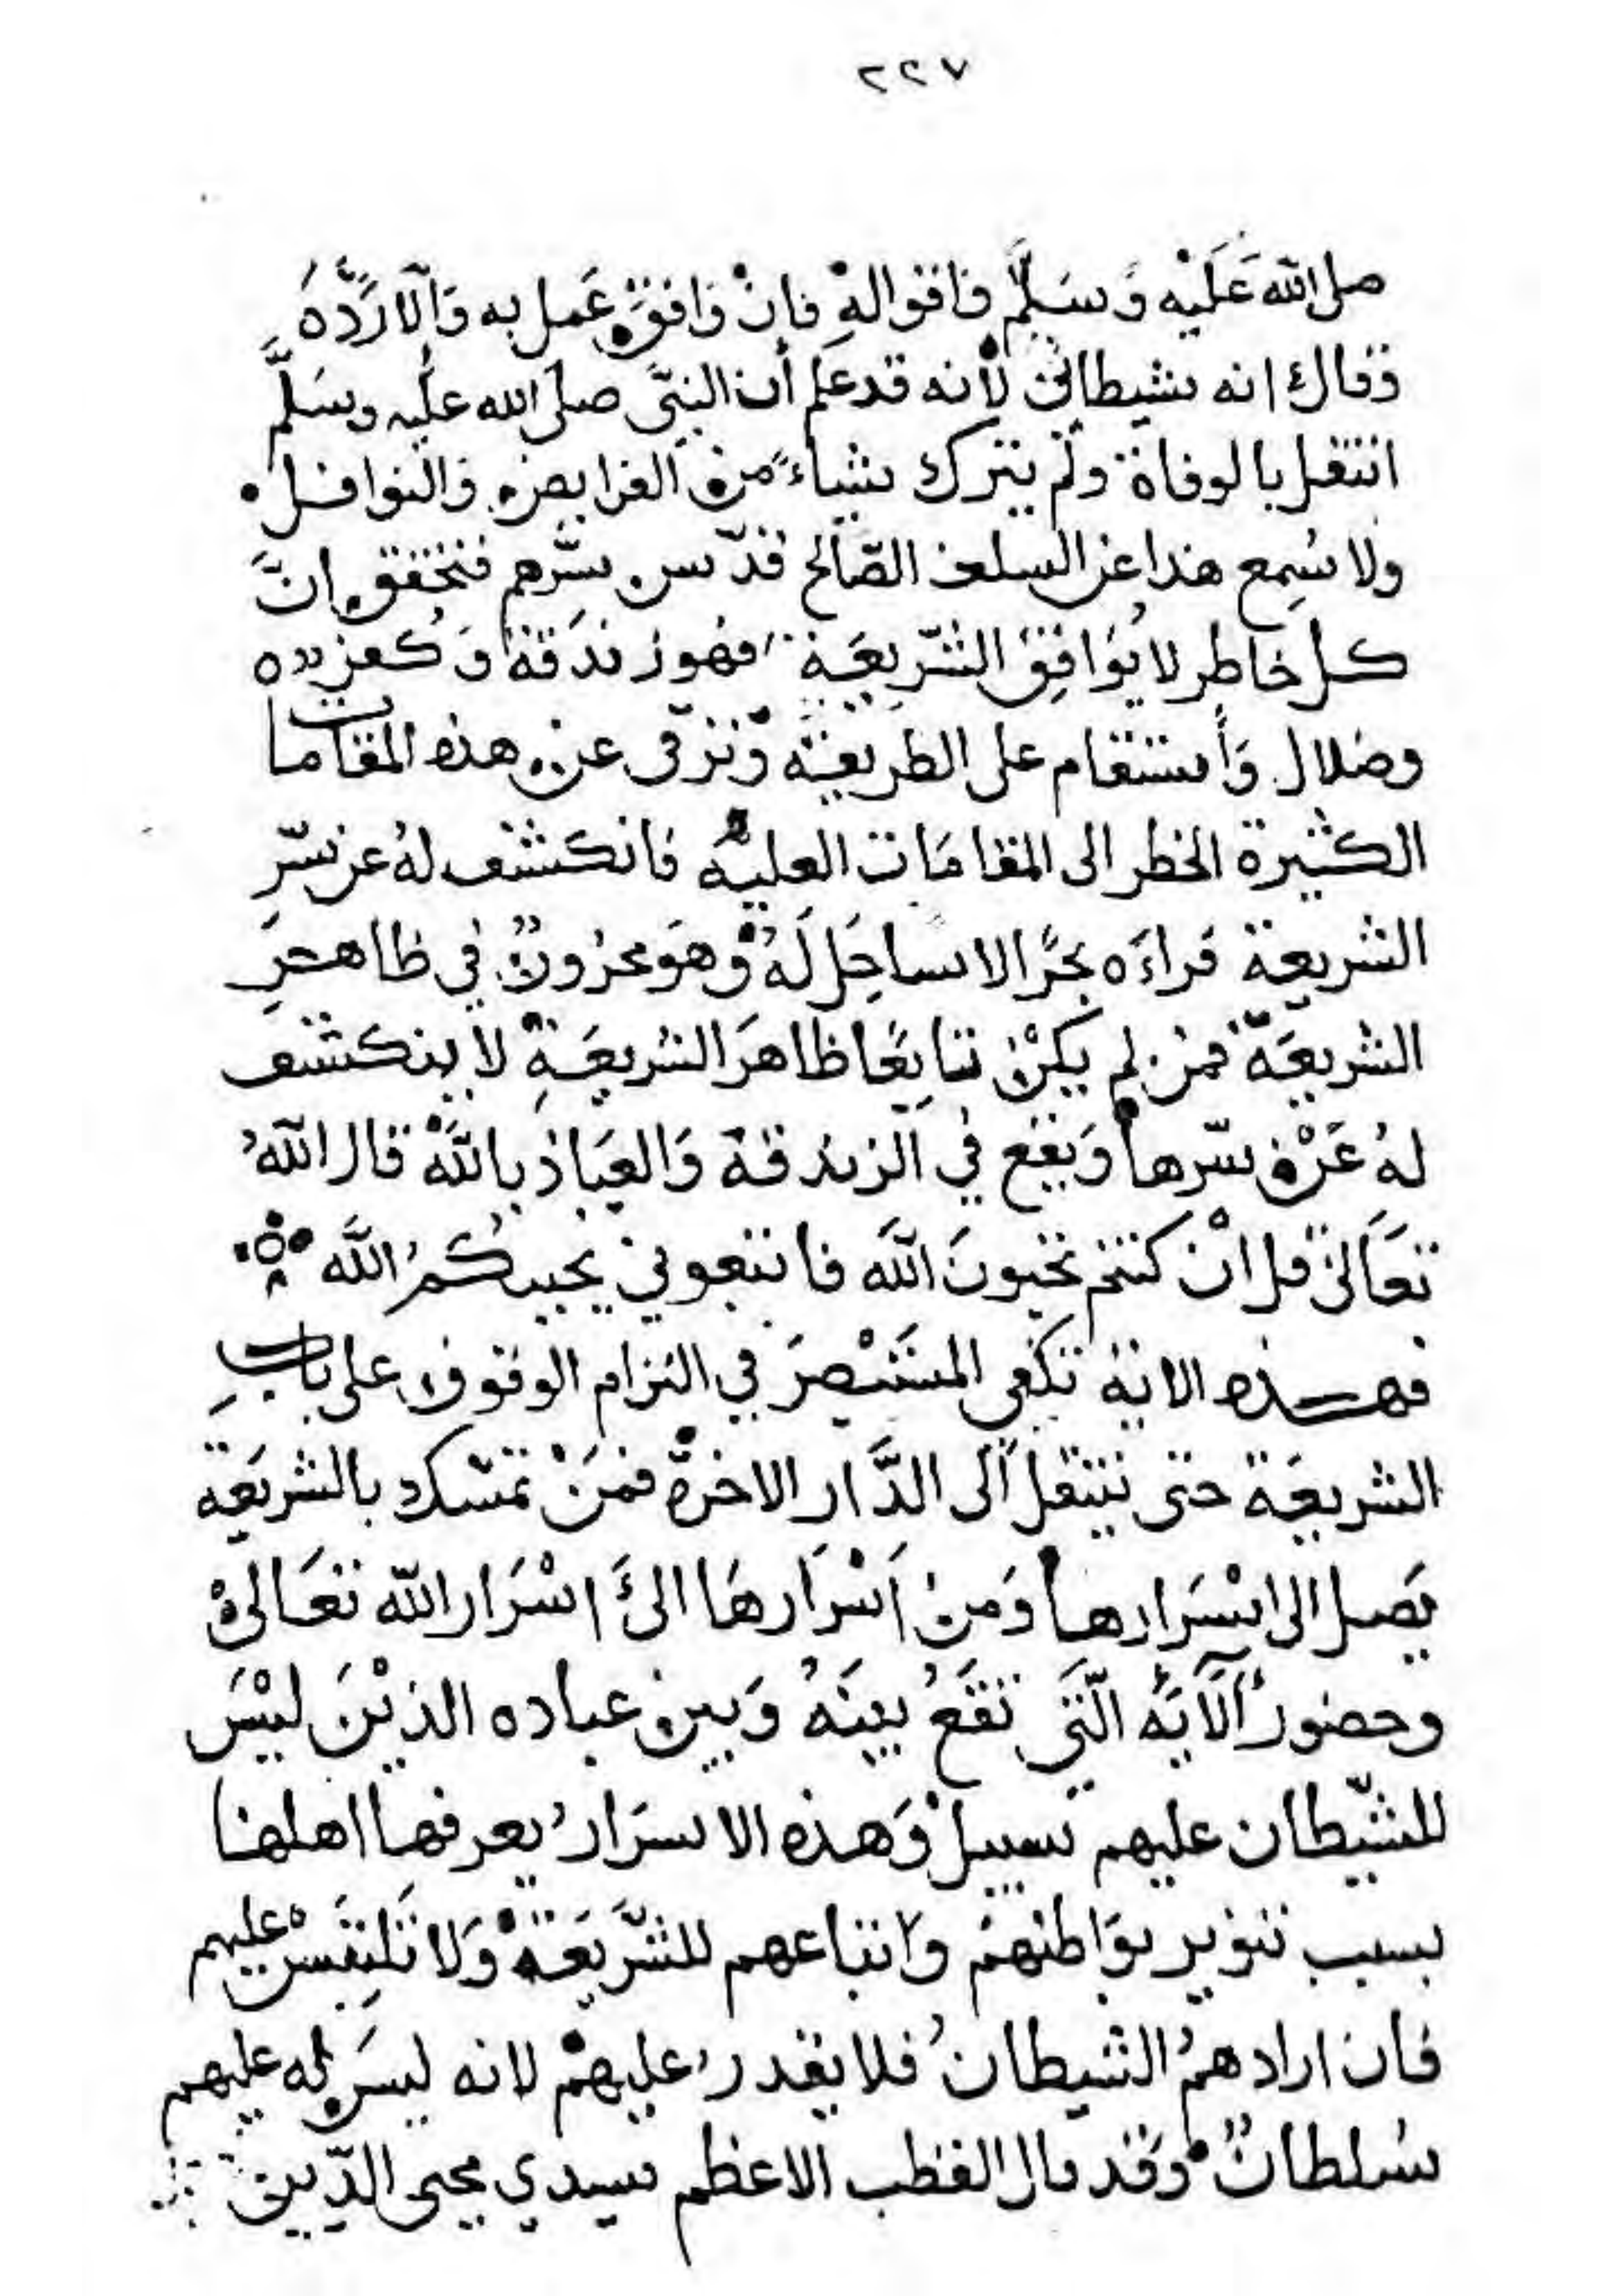 ٢٢٧
صلى الله عَلَيْه وَسَلَّم فاقواله فإنْ وَافَقَ عَمل به وَإلّا رَدَّه
وقال انه شيطاني لأنه قد علم أن النبيّ صلى الله عليه وسَلَّم
انتقل بالوفاة ولم يترك شياءً من الفرايض والنوافل
ولا سُمِع هذا عن السلف الصّالح قدّس سرّهم فتحقق انّ
كل خاطر لا يُوَافِق الشّرِيعَة فهو زندَقة وَكفر
وضلال وَأستقام على الطريقة وترقى عن هذه المقامات
الكثيرة الخطر الى المقامَات العليه فانكشف لهُ عن سّرِ
الشريعة فراءَه بحرًا لا ساحِل لَهُ وهوَ مخزونٌ في ظاهرِ
الشريعَة فمن لم يكنْ تابِعًا ظاهرَ الشريعَةِ لا ينكشف
لهُ عَنْ سّرها وَيقع في الزندقة وَالعيَاذ بالله قال اللهُ
تعَالى قل انْ كنتم تحبونَ اللهَ فاتبعوني يحببكُمُ اللَّه
فهذه الاية تكفي المستَبْصِرَ في التزام الوقوف على بابِ
الشريعَة حتى ينتقل الى الدَّار الاخرة فمَنْ تمسّك بالشريعَة
يَصل الى اسْرَارها وَمنْ اَسْرَارهَا الىَ اسْرَار الله تعَالىْ
وحضورُ الآيَه الّتَي تقَعُ بينَهُ وَبين عباده الذيْنَ ليْسَ
للشّيطان عليهم سبيل وَهذه الاسرَارُ يعرفها اهلها
بسبب تنوير بوَاطنهمْ واتباعهم للشَّريَعَة وَلا تَلتِبَسْ عليهم
فان ارادهمُ الشيطانُ فلا يقدرُ عليهمْ لانه ليسَ له عليهم
سُلطانٌ وَقد قال القطب الاعظم سيدي محيى الدّين